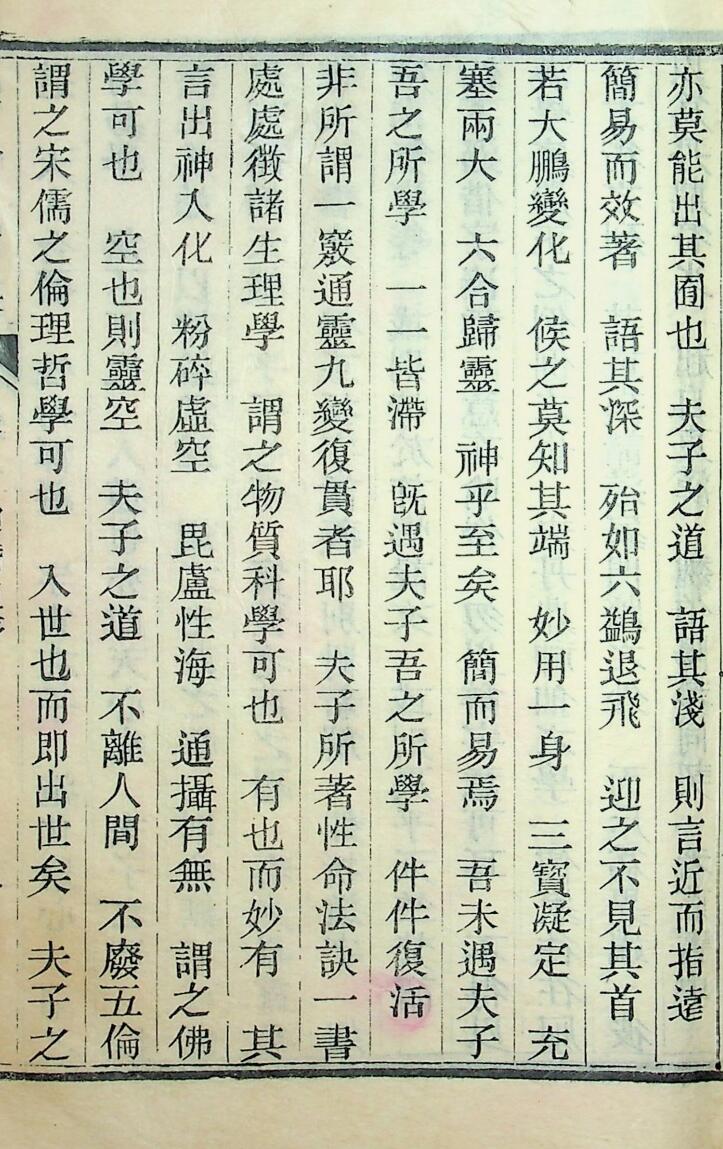 亦莫能出其囿也　夫子之道　語其淺　則言近而指遠
簡易而效著　語其深　殆如六鷁退飛　迎之不見其首
若大鵬變化　候之莫知其端　妙用一身　三寶凝定　充
塞兩大　六合歸靈　神乎至矣　簡而易焉　吾未遇夫子
吾之所學　一一皆滯　旣遇夫子吾之所學　件件復活
非所謂一竅通靈九變復貫者耶　夫子所著性命法訣一書
處處徵諸生理學　謂之物質科學可也　有也而妙有　其
言出神入化　粉碎虛空　毘盧性海　通攝有無　謂之佛
學可也　空也則靈空　夫子之道　不離人間　不廢五倫
謂之宋儒之倫理哲學可也　入世也而即出世矣　夫子之